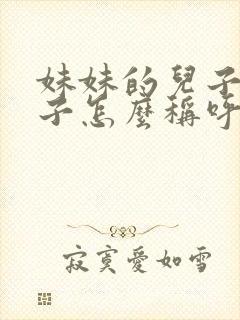 妹妹的兒子
子怎麼稱呼
寂寞愛如雪